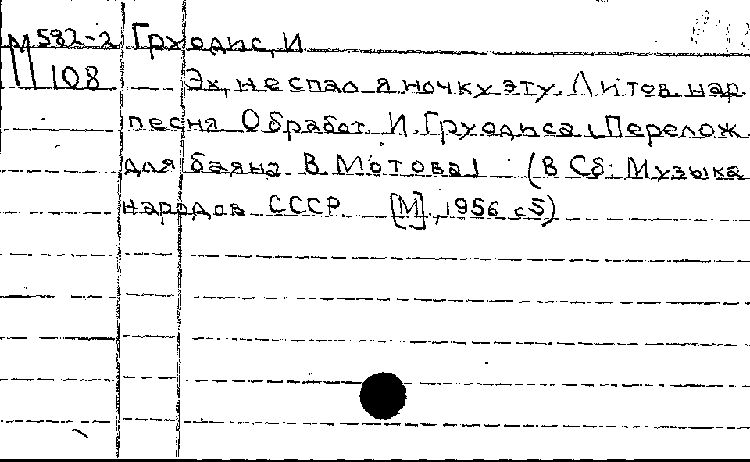 М 582-2 Груодис, И.
108 Эх, не спал я ночку эту. Литов. нар.
песня Обработ. И. Груодиса (Перелож.
для баяна В. Мотова) (В Сб: Музыка
народов СССР [М], 1956 с5)